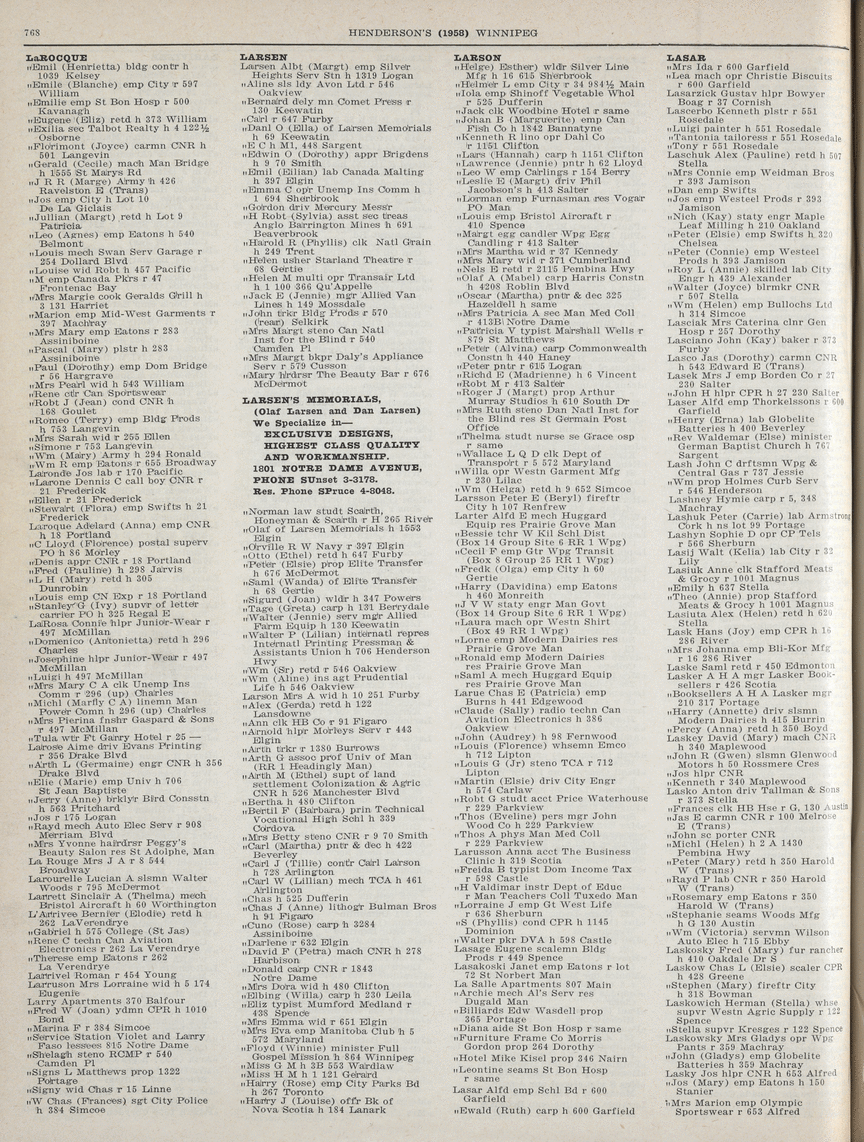 768
HENDERSON'S (1958) WINNIPEG
LaROCQUE
„Emil (Henrietta) bldg contr h
1039 Kelsey
„Emile (Blanche) emp City r 597
William
„Emilie emp St Bon Hosp r 500
Kavanagh
„Eugene (Eliz) retd h 373 William
„Exilia sec Talbot Realty h 4 122½
Osborne
„Florimont (Joyce) carmn CNR h
501 Langevin
„Gerald (Cecile) mach Man Bridge
h 1555 St Marys Rd
„J R R (Marge) Army h 426
Ravelston E (Trans)
„Jos emp City h Lot 10
De La Giclais
„Jullian (Margt) retd h Lot 9
Patricia
„Leo (Agnes) emp Eatons h 540
Belmont
„Louis mech Swan Serv Garage r
254 Dollard Blvd
„Louise wid Robt h 457 Pacific
„M emp Canada Pkrs r 47
Frontenac Bay
„Mrs Margie cook Geralds Grill h
3 131 Harriet
„Marion emp Mid-West Garments r
397 Machray
„Mrs Mary emp Eatons r 283
Assiniboine
„Pascal (Mary) plstr h 283
Assiniboine
„Paul (Dorothy) emp Dom Bridge
r 56 Hargrave
„Mrs Pearl wid h 543 William
„Rene ctr Can Sportswear
„Robt J (Jean) cond CNR h
168 Goulet
„Romeo (Terry) emp Bldg Prods
h 753 Langevin
„Mrs Sarah wid r 255 Ellen
„Simone r 753 Langevin
„Wm (Mary) Army h 294 Ronald
„Wm R emp Eatons r 655 Broadway
Laronde Jos lab r 170 Pacific
„Larone Dennis C call boy CNR r
21 Frederick
„Ellen r 21 Frederick
„Stewart (Flora) emp Swifts h 21
Frederick
Laroque Adelard (Anna) emp CNR
h 18 Portland
„C Lloyd (Florence) postal superv
PO h 86 Morley
„Denis appr CNR r 18 Portland
„Fred (Pauline) h 298 Jarvis
„L H (Mary) retd h 305
Dunrobin
„Louis emp CN Exp r 18 Portland
„Stanley G (Ivy) supvr of letter
carrier PO h 325 Regal E
LaRosa Connie hlpr Junior-Wear r
497 McMillan
„Domenico (Antonietta) retd h 296
Charles
„Josephine hlpr Junior-Wear r 497
McMillan
„Luigi h 497 McMillan
„Mrs Mary C A clk Unemp Ins
Comm r 296 (up) Charles
„Michl (Marfly C A) linemn Man
Power Comn h 296 (up) Charles
„Mrs Pierina fnshr Gaspard & Sons
r 497 McMillan
„Tula wtr Ft Garry Hotel r 25 —
Larose Aime driv Evans Printing
r 356 Drake Blvd
„Arth L (Germaine) engr CNR h 356
Drake Blvd
„Elie (Marie) emp Univ h 706
St Jean Baptiste
„Jerry (Anne) brklyr Bird Consstn
h 563 Pritchard
„Jos r 175 Logan
„Rayd mech Auto Elec Serv r 908
Merriam Blvd
„Mrs Yvonne hairdrsr Peggy's
Beauty Salon res St Adolphe, Man
La Rouge Mrs J A r 8 544
Broadway
Larourelle Lucian A slsmn Walter
Woods r 795 McDermot
Larrett Sinclair A (Thelma) mech
Bristol Aircraft h 60 Worthington
L'Arrivee Bernier (Elodie) retd h
262 LaVerendrye
„Gabriel h 575 College (St Jas)
„Rene C techn Can Aviation
Electronics r 262 La Verendrye
„Therese emp Eatons r 262
La Verendrye
Larrivel Roman r 454 Young
Larruson Mrs Lorraine wid h 5 174
Eugenie
Larry Apartments 370 Balfour
„Fred W (Joan) ydmn CPR h 1010
Bond
„Marina F r 384 Simcoe
„Service Station Violet and Larry
Faso lessees 815 Notre Dame
„Shelagh steno RCMP r 540
Camden Pl
„Signs L Matthews prop 1322
Portage
„Signy wid Chas r 15 Linne
„W Chas (Frances) sgt City Police
h 384 Simcoe
LARSEN
Larsen Albt (Margt) emp Silver
Heights Serv Stn h 1319 Logan
„Aline sls ldy Avon Ltd r 546
Oakview
„Bernard dely mn Comet Press r
130 Keewatin
„Carl r 647 Furby
„Danl O (Ella) of Larsen Memorials
h 69 Keewatin
„E C h M1, 448 Sargent
„Edwin O (Dorothy) appr Brigdens
h 9 70 Smith
„Emil (Eilian) lab Canada Malting
h 397 Elgin
„Emma C opr Unemp Ins Comm h
1 694 Sherbrook
„Gordon driv Mercury Messr
„H Robt (Sylvia) asst sec treas
Anglo Barrington Mines h 691
Beaverbrook
„Harold R (Phyllis) clk Natl Grain
h 249 Trent
„Helen usher Starland Theatre r
68 Gertie
„Helen M multi opr Transair Ltd
h 1 100 366 Qu'Appelle
„Jack E (Jennie) mgr Allied Van
Lines h 149 Mossdale
„John trkr Bldg Prods r 570
(rear) Selkirk
„Mrs Margt steno Can Natl
Inst for the Blind r 540
Camden Pl
„Mrs Margt bkpr Daly's Appliance
Serv r 579 Cusson
„Mary hrdrsr The Beauty Bar r 676
McDermot
LARSEN'S MEMORIALS,
(Olaf Larsen and Dan Larsen)
We Specialize in—
EXCLUSIVE DESIGNS,
HIGHEST CLASS QUALITY
AND WORKMANSHIP.
1801 NOTRE DAME AVENUE,
PHONE SUnset 3-3178.
Res. Phone SPruce 4-8048.
„Norman law studt Scarth,
Honeyman & Scarth r H 265 River
„Olaf of Larsen Memorials h 1553
Elgin
„Orville R W Navy r 397 Elgin
„Otto (Ethel) retd h 647 Furby
„Peter (Elsie) prop Elite Transfer
h 676 McDermot
„Saml (Wanda) of Elite Transfer
h 68 Gertie
„Sigurd (Joan) wldr h 347 Powers
„Tage (Greta) carp h 131 Berrydale
„Walter (Jennie) serv mgr Allied
Farm Equip h 130 Keewatin
„Walter P (Lilian) internatl repres
Internatl Printing Pressman &
Assistants Union h 706 Henderson
Hwy
„Wm (Sr) retd r 546 Oakview
„Wm (Aline) ins agt Prudential
Life h 546 Oakview
Larson Mrs A wid h 10 251 Furby
„Alex (Gerda) retd h 122
Lansdowne
„Ann clk HB Co r 91 Figaro
„Arnold hlpr Morleys Serv r 443
Elgin
„Artn trkr r 1380 Burrows
„Arth G assoc prof Univ of Man
(RR 1 Headingly Man)
„Arth M (Ethel) supt of land
settlement Colonization & Agric
CNR h 526 Manchester Blvd
„Bertha h 480 Clifton
„Bertil F (Barbara) prin Technical
Vocational High Schl h 339
Cordova
„Mrs Betty steno CNR r 9 70 Smith
„Carl (Martha) pntr & dec h 422
Beverley
„Carl J (Tillie) contr Carl Larson
h 728 Arlington
„Carl W (Lillian) mech TCA h 461
Arlington
„Chas h 525 Dufferin
„Chas J (Anne) lithogr Bulman Bros
h 91 Figaro
„Cuno (Rose) carp h 3284
Assiniboine
„Darlene r 632 Elgin
„David F (Petra) mach CNR h 278
Harbison
„Donald carp CNR r 1843
Notre Dame
„Mrs Dora wid h 480 Clifton
„Elbing (Willa) carp h 230 Leila
„Eliz typist Mumford Medland r
438 Spence
„Mrs Emma wid r 651 Elgin
„Mrs Eva emp Manitoba Club h 5
572 Maryland
„Floyd (Winnie) minister Full
Gospel Mission h 864 Winnipeg
„Miss G M h 3B 553 Wardlaw
„Miss H M h 1 121 Gerard
„Harry (Rose) emp City Parks Bd
h 267 Toronto
„Harry J (Louise) offr Bk of
Nova Scotia h 184 Lanark
LARSON
„Helge) Esther) wldr Silver Line
Mfg h 16 615 Sherbrook
„Helmer L emp City r 34 984½ Main
„Iola emp Shlnoff Vegetable Whol
r 525 Dufferin
„Jack clk Woodbine Hotel r same
„John B (Marguerite) emp Can
Fish Co h 1842 Bannatyne
„Kenneth R lino opr Dahl Co
r 1151 Clifton
„Lars (Hannah) carp h 1151 Clifton
„Lawrence (Jennie) pntr h 62 Lloyd
„Leo W emp Carlings r 154 Berry
„Leslie E (Margt) driv Phil
Jacobson's h 413 Salter
„Lorman emp Furnasman res Vogar
PO Man
„Louis emp Bristol Aircraft r
410 Spence
„Margt egg candler Wpg Egg
Candling r 413 Salter
„Mrs Martha wid r 37 Kennedy
„Mrs Mary wid r 371 Cumberland
„Nels E retd r 2115 Pembina Hwy
„Olaf A (Mabel) carp Harris Constn
h 4208 Roblin Blvd
„Oscar (Martha) pntr & dec 325
Hazeldell h same
„Mrs Patricia A sec Man Med Coll
r 413B Notre Dame
„Patricia V typist Marshall Wells r
879 St Matthews
„Peter (Alvina) carp Commonwealth
Constn h 440 Haney
„Peter pntr r 615 Logan
„Richd E (Madrienne) h 6 Vincent
„Robt M r 413 Salter
„Roger J (Margt) prop Arthur
Murray Studios h 610 South Dr
„Mrs Ruth steno Dan Natl Inst for
the Blind res St Germain Post
Office
„Thelma studt nurse se Grace osp
r same
„Wallace L Q D clk Dept of
Transport r 5 572 Maryland
„Willa opr Westn Garment Mfg
r 230 Lilac
„Wm (Helga) retd h 9 652 Simcoe
Larsson Peter E (Beryl) fireftr
City h 107 Renfrew
Larter Alfd E mech Huggard
Equip res Prairie Grove Man
„Bessie tchr W Kil Schl Dist
(Box 14 Group Site 6 RR 1 Wpg)
„Cecil F emp Gtr Wpg Transit
(Box 8 Group 25 RR 1 Wpg)
„Fredk (Olga) emp City h 60
Gertie
„Harry (Davidina) emp Eatons
h 460 Monreith
„J V W staty engr Man Govt
(Box 14 Group Site 6 RR 1 Wpg)
„Laura mach opr Westn Shirt
(Box 49 RR 1 Wpg)
„Lorne emp Modern Dairies res
Prairie Grove Man
„Ronald emp Modern Dairies
res Prairie Grove Man
„Saml A mech Huggard Equip
res Prairie Grove Man
Larue Chas E (Patricia) emp
Burns h 441 Edgewood
„Claude (Sally) radio techn Can
Aviation Electronics h 386
Oakview
„John (Audrey) h 98 Fernwood
„Louis (Florence) whsemn Emco
h 712 Lipton
„Louis G (Jr) steno TCA r 712
Lipton
„Martin (Elsie) driv City Engr
h 574 Carlaw
„Robt G studt acct Price Waterhouse
r 229 Parkview
„Thos (Eveline) pers mgr John
Wood Co h 229 Parkview
„Thos A phys Man Med Coll
r 229 Parkview
Larusson Anna acct The Business
Clinic h 319 Scotia
„Freida B typist Dom Income Tax
r 598 Castle
„H Valdimar instr Dept of Educ
r Man Teachers Coll Tuxedo Man
„Lorraine J emp Gt West Life
r 636 Sherburn
„S (Phyllis) cond CPR h 1145
Dominion
„Walter pkr DVA h 598 Castle
Lasage Eugene scalemn Bldg
Prods r 449 Spence
Lasakoski Janet emp Eatons r lot
72 St Norbert Man
La Salle Apartments 807 Main
„Archie mech Al's Serv res
Dugald Man
„Billiards Edw Wasdell prop
365 Portage
„Diana aide St Bon Hosp r same
„Furniture Frame Co Morris
Gordon prop 264 Dorothy
„Hotel Mike Kisel prop 346 Nairn
„Leontine seams St Bon Hosp
r same
Lasar Alfd emp Schl Bd r 600
Garfield
„Ewald (Ruth) carp h 600 Garfield
LASAR
„Mrs Ida r 600 Garfield
„Lea mach opr Christie Biscuits
r 600 Garfield
Lasarzick Gustav hlpr Bowyer
Boag r 37 Cornish
Lascerbo Kenneth plstr r 551
Rosedale
„Luigi painter h 551 Rosedale
„Tantonia tailoress r 551 Rosedale
„Tony r 551 Rosedale
Laschuk Alex (Pauline) retd h 507
Stella
„Mrs Connie emp Weidman Bros
r 393 Jamison
„Dan emp Swifts
„Jos emp Westeel Prods r 393
Jamison
„Nich (Kay) staty engr Maple
Leaf Milling h 210 Oakland
„Peter (Elsie) emp Swifts h 320
Chelsea
„Peter (Connie) emp Westeel
Prods h 393 Jamison
„Roy L (Annie) skilled lab City
Engr h 439 Alexander
„Walter (Joyce) blrmkr CNR
r 507 Stella
„Wm (Helen) emp Bullochs Ltd
h 314 Simcoe
Lasciak Mrs Caterina clnr Gen
Hosp r 257 Dorothy
Lasciano John (Kay) baker r 373
Furby
Lasco Jas (Dorothy) carmn CNR
h 543 Edward E (Trans)
Lasek Mrs J emp Borden Co r 27
230 Salter
„John H hlpr CPR h 27 230 Salter
Laser Alfd emp Thorkelssons r 600
Garfield
„Henry (Erna) lab Globelite
Batteries h 400 Beverley
„Rev Waldemar (Else) minister
German Baptist Church h 767
Sargent
Lash John C drftsmn Wpg &
Central Gas r 737 Jessie
„Wm prop Holmes Curb Serv
r 546 Henderson
Lashney Hymie carp r 5, 348
Machray
Lashuk Peter (Carrie) lab Armstrong
Cork h ns lot 99 Portage
Lashyn Sophie D opr CP Tels
r 566 Sherburn
Lasij Walt (Kelia) lab City r 32
Lily
Lasiuk Anne clk Stafford Meats
& Grocy r 1001 Magnus
„Emily h 637 Stella
„Theo (Annie) prop Stafford
Meats & Grocy h 1001 Magnus
Lasiuta Alex (Helen) retd h 620
Stella
Lask Hans (Joy) emp CPR h 16
286 River
„Mrs Johanna emp Bli-Kor Mfg
r 16 286 River
Laske Saml retd r 450 Edmonton
Lasker A H A mgr Lasker Book-
sellers r 426 Scotia
„Booksellers A H A Lasker mgr
210 317 Portage
„Harry (Annette) driv slsmn
Modern Dairies h 415 Burrin
„Percy (Anna) retd h 350 Boyd
Laskey David (Mary) mach CNR
h 340 Maplewood
„John R (Gwen) slsmn Glenwood
Motors h 50 Rossmere Cres
„Jos hlpr CNR
„Kenneth r 340 Maplewood
Lasko Anton driv Tallman & Sons
r 373 Stella
„Frances clk HB Hse r G, 130 Austin
„Jas E carmn CNR r 100 Melrose
E (Trans)
„John sc porter CNR
„Michl (Helen) h 2 A 1430
Pembina Hwy
„Peter (Mary) retd h 350 Harold
W (Trans)
„Rayd P lab CNR r 350 Harold
W (Trans)
„Rosemary emp Eatons r 350
Harold W (Trans)
„Stephanie seams Woods Mfg
h G 130 Austin
„Wm (Victoria) servmn Wilson
Auto Elec h 715 Ebby
Laskosky Fred (Mary) fur rancher
h 410 Oakdale Dr S
Laskow Chas L (Elsie) scaler CPR
h 428 Greene
„Stephen (Mary) fireftr City
h 318 Bowman
Laskowich Herman (Stella) whse
supvr Westn Agric Supply r 122
Spence
„Stella supvr Kresges r 122 Spence
Laskowsky Mrs Gladys opr Wpg
Pants r 359 Machray
„John (Gladys) emp Globelite
Batteries h 359 Machray
Lasky Jos hlpr CNR h 653 Alfred
„Jos (Mary) emp Eatons h 150
Stanier
„Mrs Marion emp Olympic
Sportswear r 653 Alfred